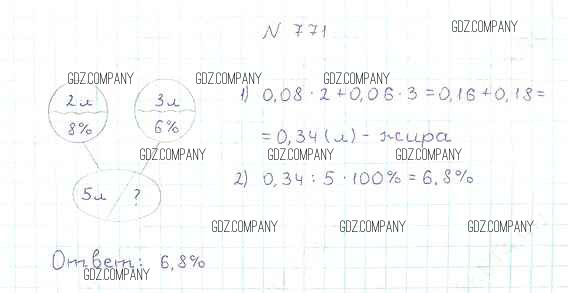 N 771
GDZ.COMPANY
GDZ.COMPANY GDZ.COMPANY GDZ.COMPANY
2 л
8%
3 л
6%
5 л ?
1) 0,08 · 2 + 0,06 · 3 = 0,16 + 0,18 =
= 0,34 (л) - жира
GDZ.COMPANY GDZ.COMPANY GDZ.COMPANY
2) 0,34 : 5 · 100% = 6,8%
GDZ.COMPANY GDZ.COMPANY GDZ.COMPANY
Ответ: 6,8%
GDZ.COMPANY